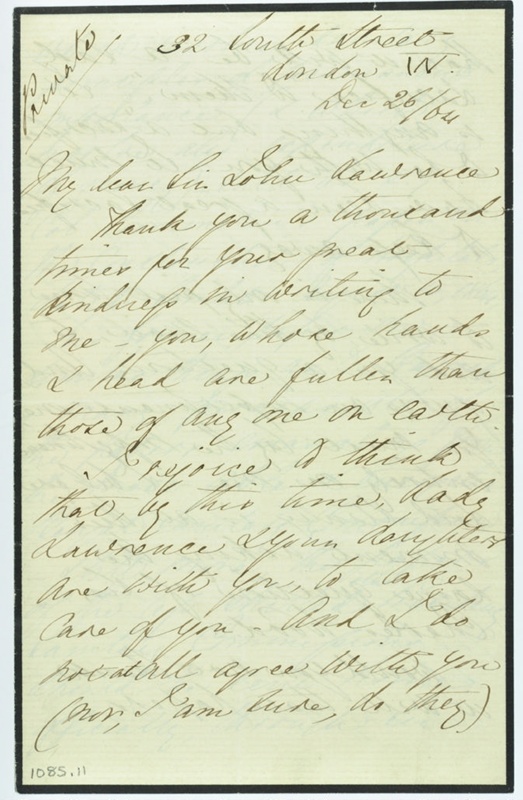 Private
32 South Street
London W.
Dec 26/64
My dear Sir John Lawrence
Thank you a thousand
times for your great
kindness in writing to
me - you, whose hands
& head are fuller than
those of any one on earth.
I rejoice to think
that, by this time, Lady
Lawrence & your daughters
are with you, to take
care of you - And I do
not at all agree with you
(nor, I am sure, do they)
1085.11